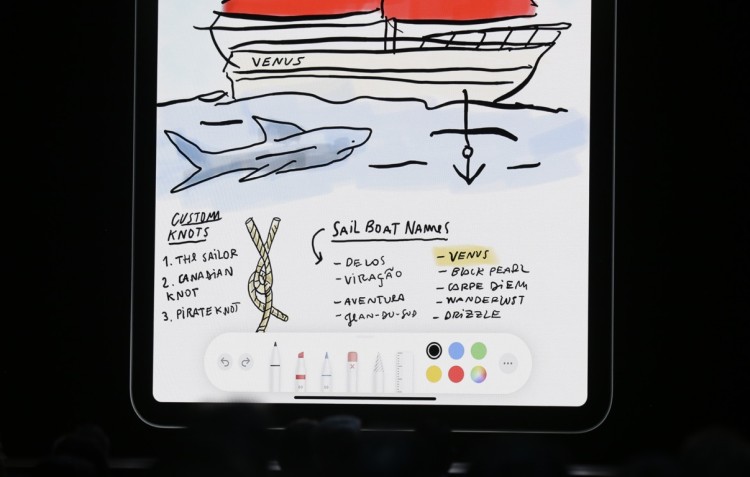 VENUS
CUSTOM
KNOTS
1. THE SAILOR
2. CANADIAN
KNOT
3. PIRATE KNOT
SAIL BOAT NAMES
- DELOS
- VIRAÇÃO
- AVENTURA
- JEAN-DU-SUD
- VENUS
- BLACK PEARL
- CARPE DIEM
- WANDERLUST
- DRIZZLE